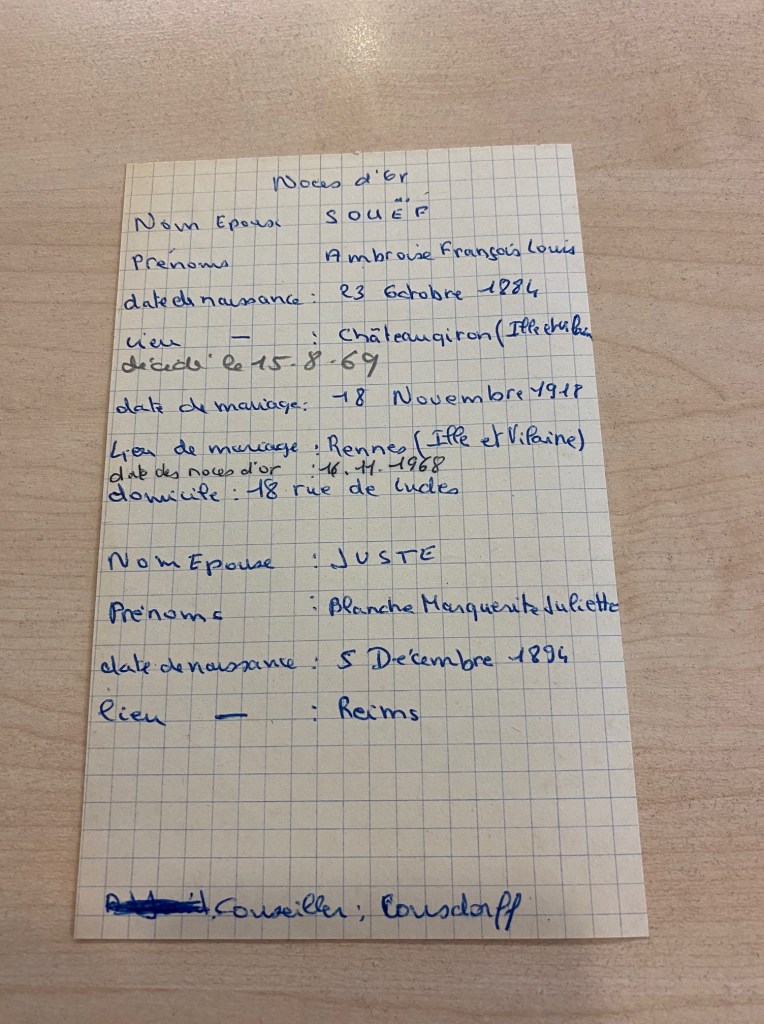 Noces d'Or
Nom Epoux SOUËF
Prénoms Ambroise François Louis
date de naissance : 23 Octobre 1884
lieu — : Châteaugiron (Ille et Vilaine
décédé le 15.8.69
date de mariage : 18 Novembre 1918
Lieu de mariage : Rennes (Ille et Vilaine)
date des noces d'or : 16.11.1968
domicile : 18 rue de Ludes
Nom Epouse : JUSTE
Prénoms : Blanche Marguerite Juliette
date de naissance : 5 Décembre 1894
lieu — : Reims
Conseiller :